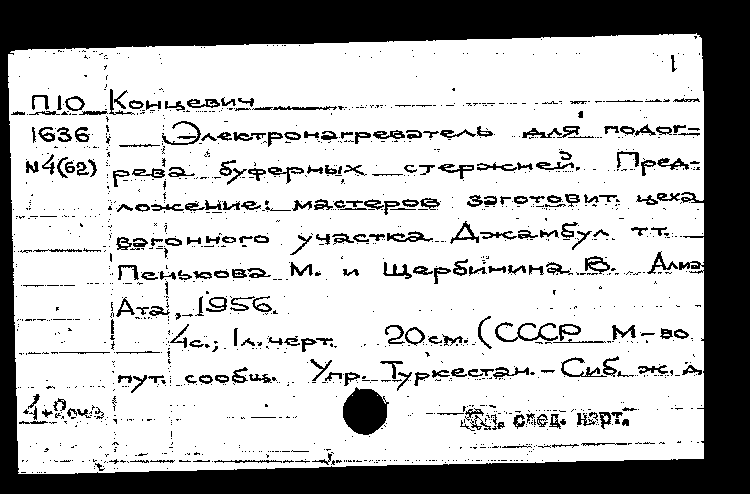 1
П10 Концевич
1636 Электронагреватель для подог=
N4(62) рева буферных стержней. Пред-
ложение: мастеров заготовит. цеха
вагонного участка Джамбул тт.
Пенькова М. и Щербинина В. Алма
Ата, 1956.
4с.; 1л. черт. 20см. (СССР М-во
пут. сообщ. Упр. Туркестан.-Сиб. ж. д.
след. карт.